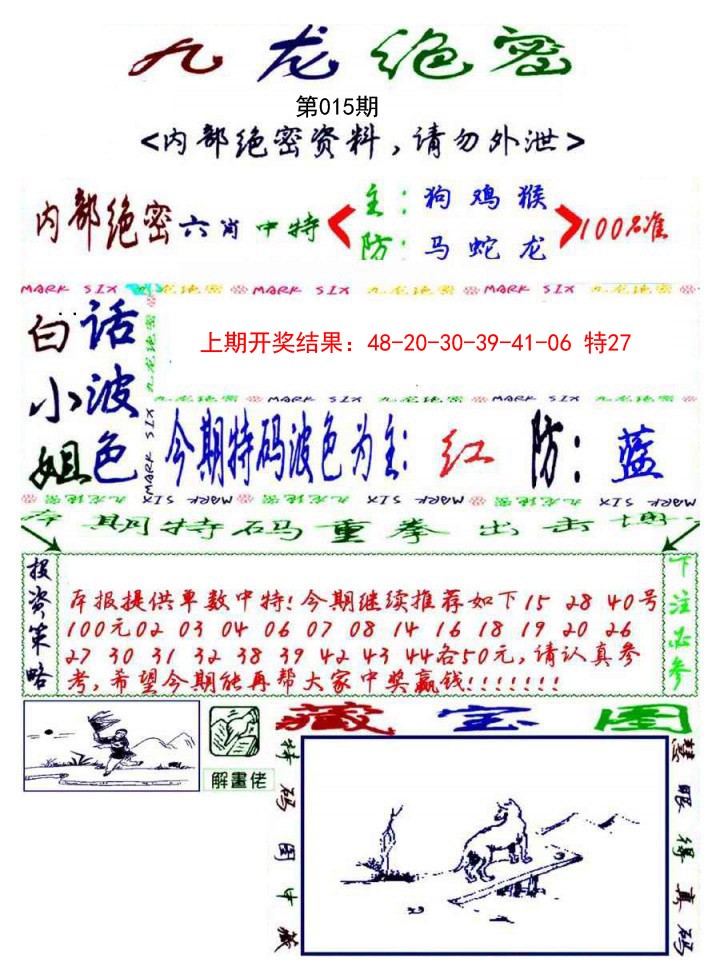 九龙绝密
第015期
<内部绝密资料,请勿外泄>
内部绝密六肖中特
主:狗 鸡 猴
防:马 蛇 龙
100%准
MARK SIX 九龙绝密 MARK SIX 九龙绝密 MARK SIX 九龙绝密
白话小姐波色
九龙绝密
MARK SIX
上期开奖结果：48-20-30-39-41-06 特27
九龙绝密 MARK SIX 九龙绝密 MARK SIX 九龙绝密
今期特码波色为主: 红 防: 蓝
九龙绝密 MARK SIX 九龙绝密 MARK SIX 九龙绝密 MARK SIX
本期特码重拳出击博
投资策略
本报提供单数中特!今期继续推荐如下15 28 40号
100元02 03 04 06 07 08 14 16 18 19 20 26
27 30 31 32 38 39 42 43 44各50元,请认真参
考,希望今期能再帮大家中奖赢钱!!!!!!!
下注必参
藏宝图
解畫佬
特码图中藏
慧眼得真码